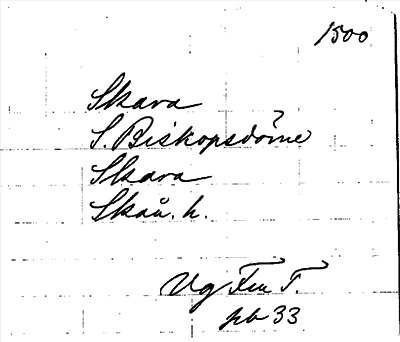 1500
Skara
S. Biskopsdöme
Skara
Skaå. h.
Vg Fru T.
pb 33